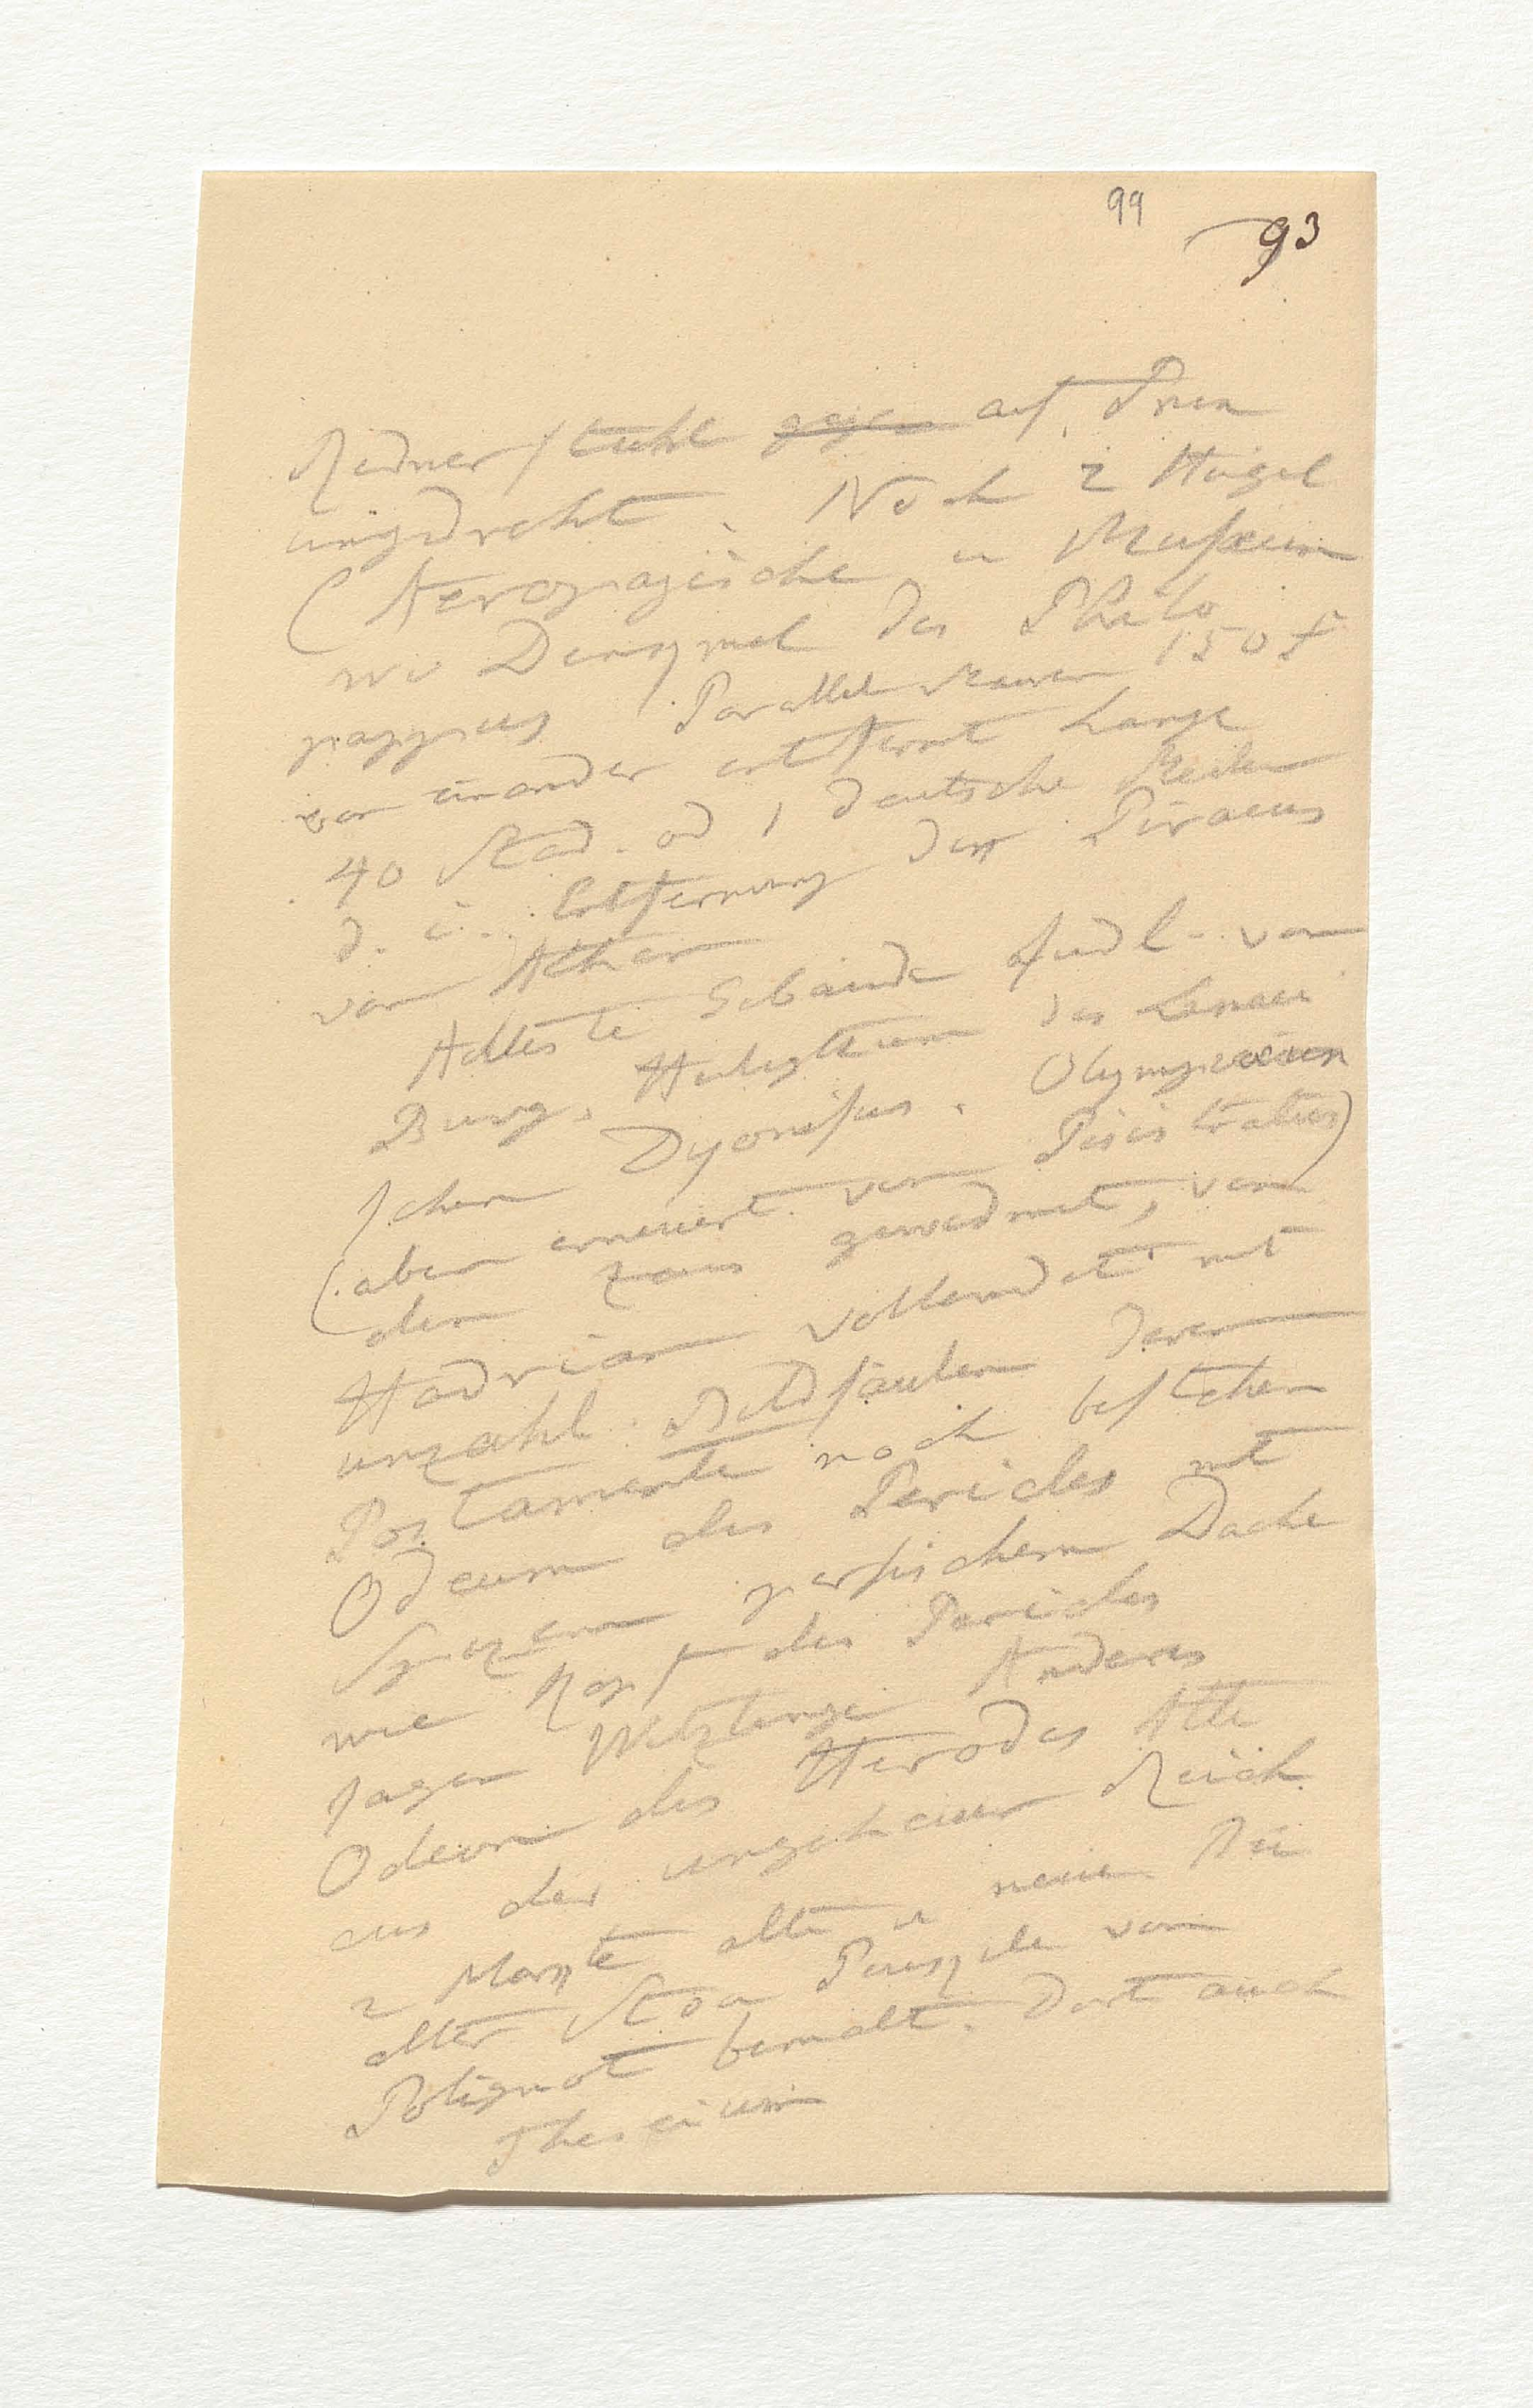 99
93
Rednerstuhl gegen auf Pnen
umgedreht. Noch 2 Hügel
(Aeropagische u Museum
wo Denkmal des Philo
pappus Parallel Mauer 150 f
von einander entfernt Lange
40 Stad. od 1 deutsche Meile
d. i. Entfernung des Piraeus
von Athen
Aelteste Gebäude südl. von
Burg. Heiligthum des Lenaei
schen Dyonisus. Olympieion
(aber erneuert von Pisistratus)
dem Zeus gewidmet, von
Hadrian vollendet mit
unzähl. Bildsäulen deren
Postamente noch bestehen
Odeum des Pericles mit
persischem Dache
wie Kopf des Pericles
sagen Anderes
Odeum des Herodes Atti
cus der ungeheuer Reich
2 Markte alte u neue In
alter Stoa Poikile von
Polignot bemalt. Dort auch
Theseium